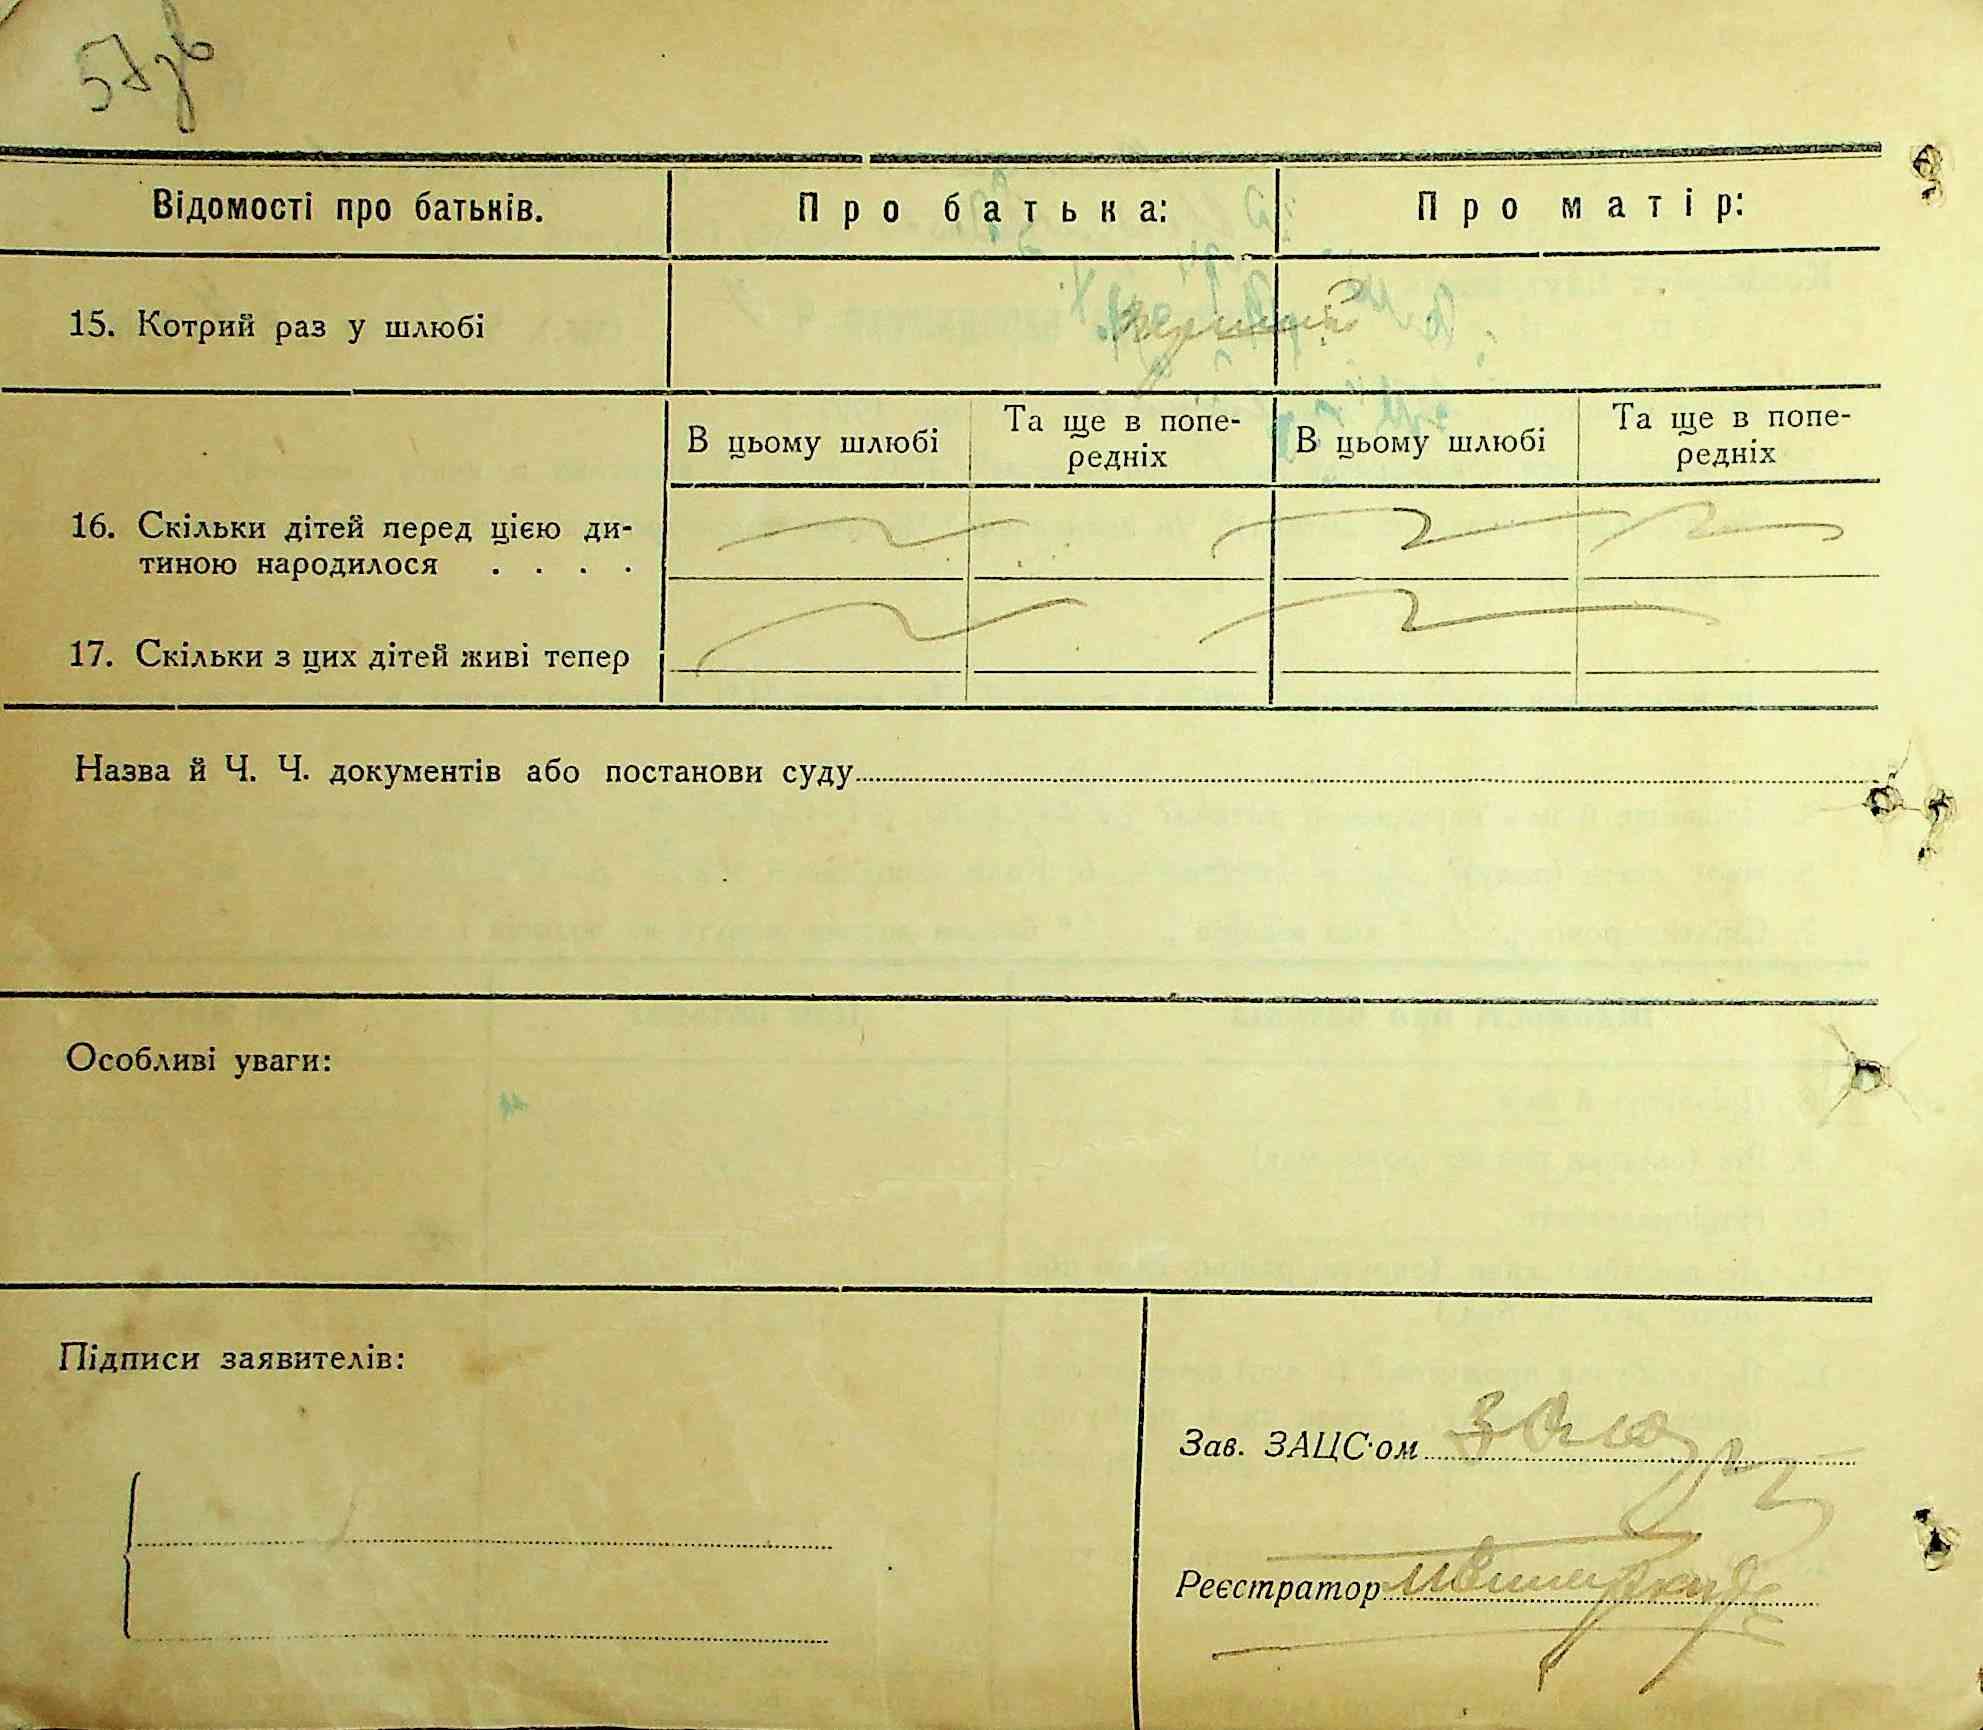 57зв
Відомості про батьків.
Про батька:
Про матір:
15. Котрий раз у шлюбі
перший
В цьому шлюбі
Та ще в попе-
редніх
В цьому шлюбі
Та ще в попе-
редніх
16. Скільки дітей перед цією ди-
тиною народилося . . . .
17. Скільки з цих дітей живі тепер
Назва й Ч. Ч. документів або постанови суду
Особливі уваги:
Підписи заявителів:
Зав. ЗАЦС'ом
Реєстратор